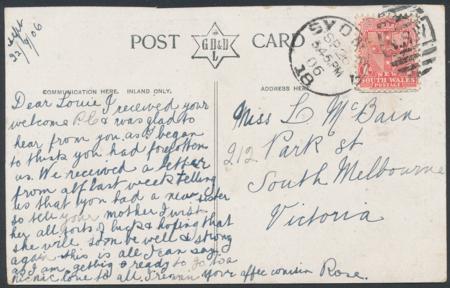 Sept
22/9/06
POST CARD
G.D&D
L
COMMUNICATION HERE. INLAND ONLY.
ADDRESS HERE.
SYDNEY
SP 22
3 45 PM
06
NEW
SOUTH WALES
POSTAGE
Dear Louie I received your
welcome P.C & was glad to
hear from you as I began
to think you had forgotten
us. We received a letter
from all last week telling
us that you had a new sister
so tell your mother I wish
her all sorts of luck & hoping that
she will soon be well & strong
again this is all I can say
as I am getting ready to go to a
pic-nic love to all I remain your affec cousin Rose.
Miss L McBain
212 Park St
South Melbourne
Victoria